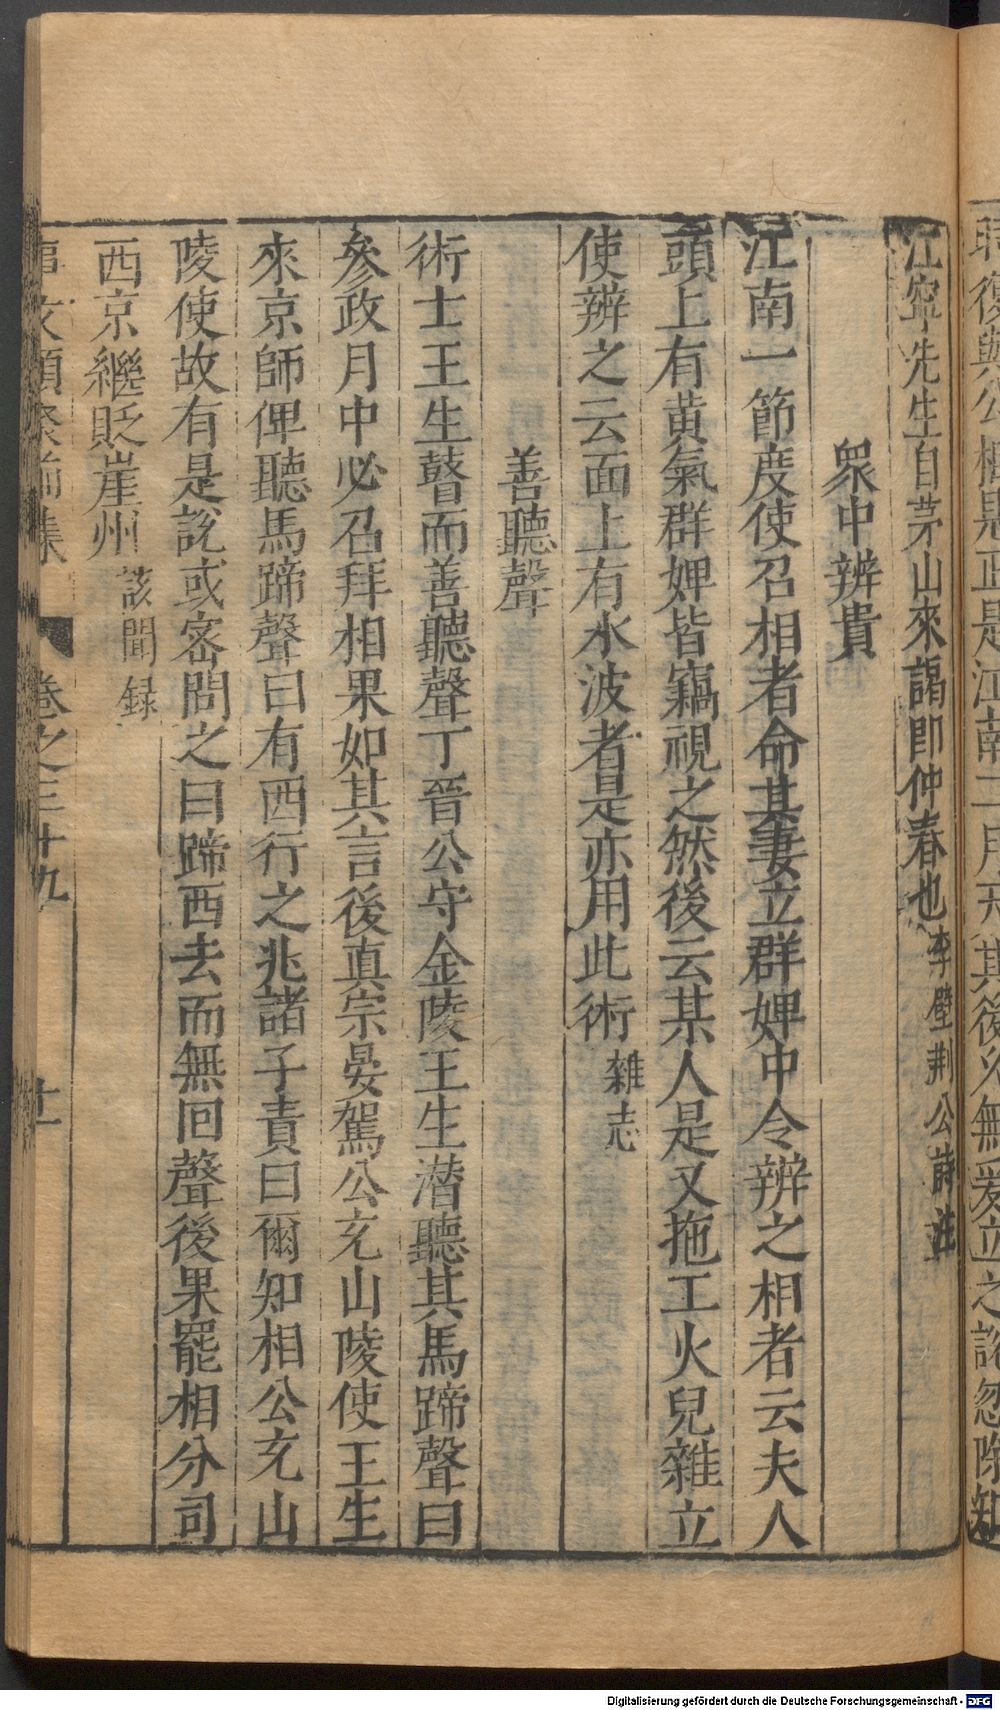 江寧先生自茅山來謁即仲春也李壁荆公詩注
衆中辨貴
江南一節度使召相者命其妻立群婢中令辨之相者云夫人
頭上有黄氣群婢皆竊視之然後云某人是又拖工火兒雜立
使辨之云面上有水波者是亦用此術雜志
善聽聲
術士王生瞽而善聽聲丁晉公守金陵王生潜聽其馬蹄聲曰
參政月中必召拜相果如其言後真宗晏駕公充山陵使王生
來京師俾聽馬蹄聲曰有西行之兆諸子責曰爾知相公充山
陵使故有是説或宻問之曰蹄西去而無回聲後果罷相分司
西京繼貶崖州該聞録
事文類聚前集 卷之三十九 廿一
Digitalisierung gefördert durch die Deutsche Forschungsgemeinschaft - DFG